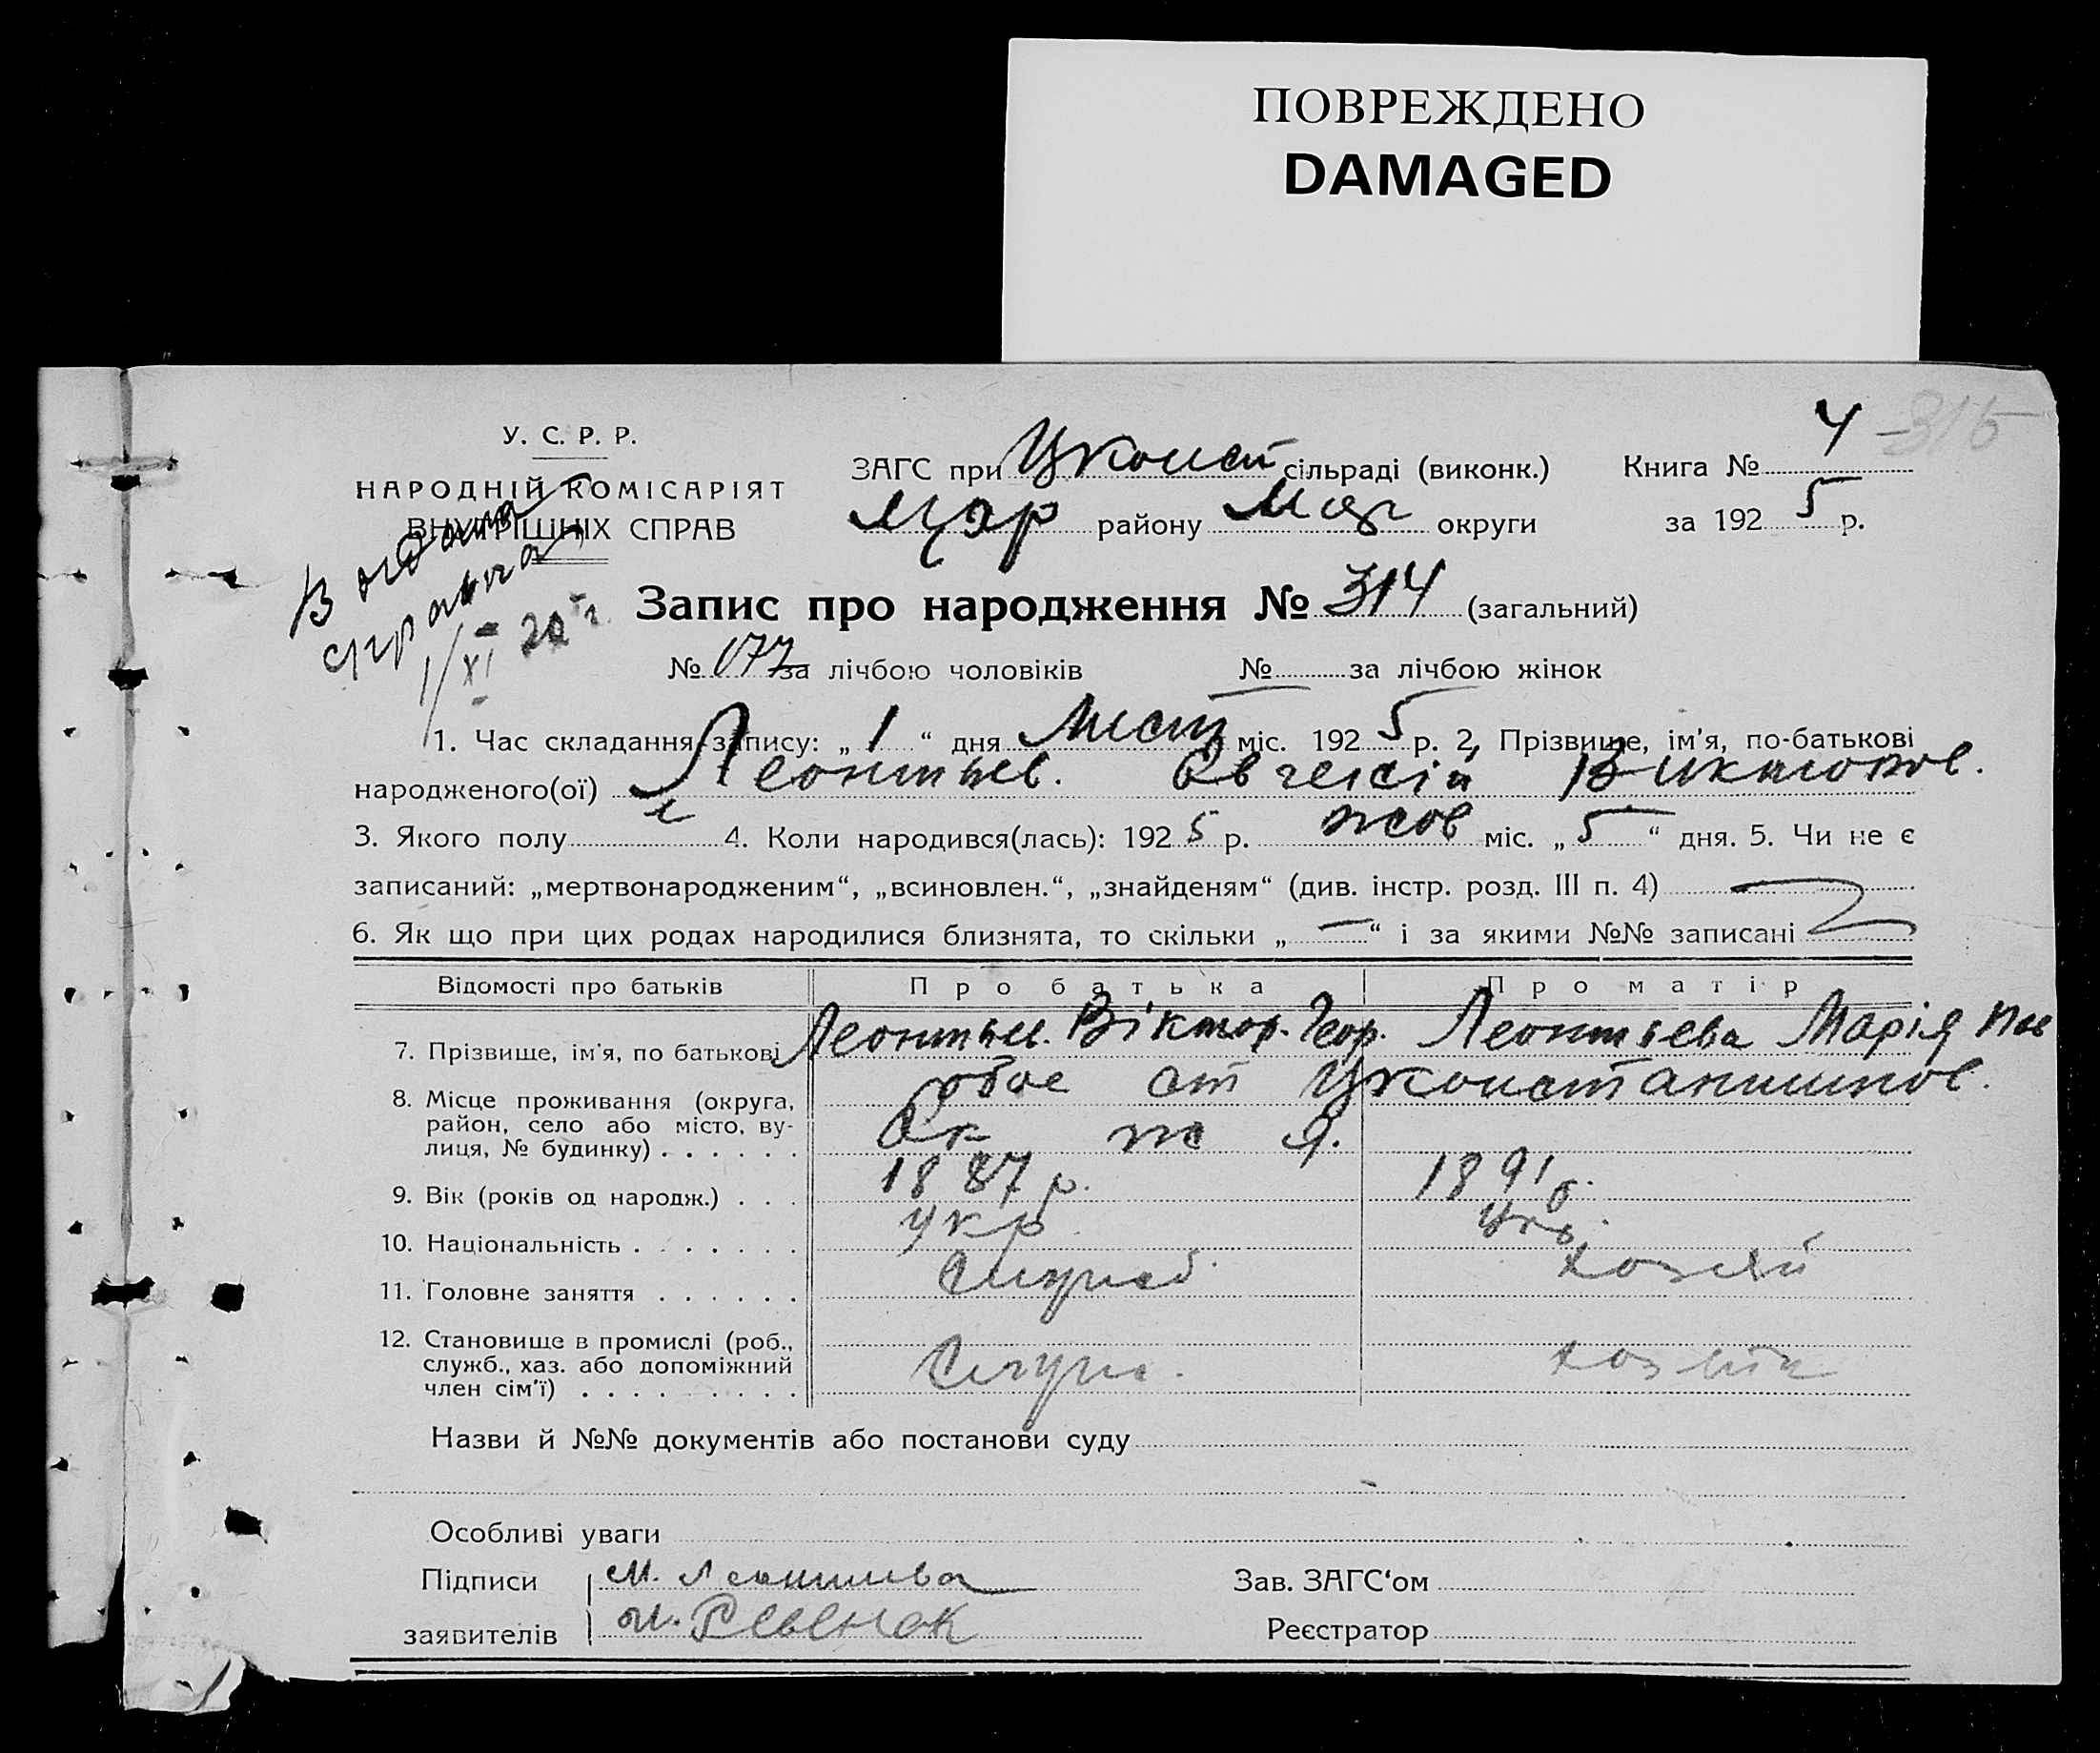 ПОВРЕЖДЕНО
DAMAGED
4
315
У. С. Р. Р.
НАРОДНІЙ КОМІСАРІЯТ
ВНУТРІШНІХ СПРАВ
ЗАГС при Цконст сільраді (виконк.) Книга №
району Мар округи за 1925 р.
справка
1/XI
Запис про народження № 314 (загальний)
№ 177 за лічбою чоловіків № за лічбою жінок
1. Час складання запису: „1“ дня Лист міс. 1925 р. 2. Прізвище, ім'я, по-батькові
народженого(ої) Леонтьев. Євгеній Викторов.
3. Якого полу ч 4. Коли народився(лась): 1925 р. жов міс. „5“ дня. 5. Чи не є
записаний: „мертвонародженим“, „всиновлен.“, „знайденям“ (див. інстр. розд. III п. 4)
6. Як що при цих родах народилися близнята, то скільки „—“ і за якими №№ записані
Відомості про батьків Про батька Про матір
7. Прізвище, ім'я, по батькові Леонтьев. Віктор. Геор. Леонтьева Марія
8. Місце проживання (округа, район, село або місто, вулиця, № будинку) . . . . . . обое ст Цконстантинов.
9. Вік (років од народж.) . . . 1887 р. 1891 р.
10. Національність . . . . . . . укр укр.
11. Головне заняття . . . . . .
12. Становище в промислі (роб., служб., хаз. або допоміжний член сім'ї) . . . . . . . . . Служ.
Назви й №№ документів або постанови суду
Особливі уваги
Підписи М. Леонтьева
заявителів Ревенок
Зав. ЗАГС'ом
Реєстратор